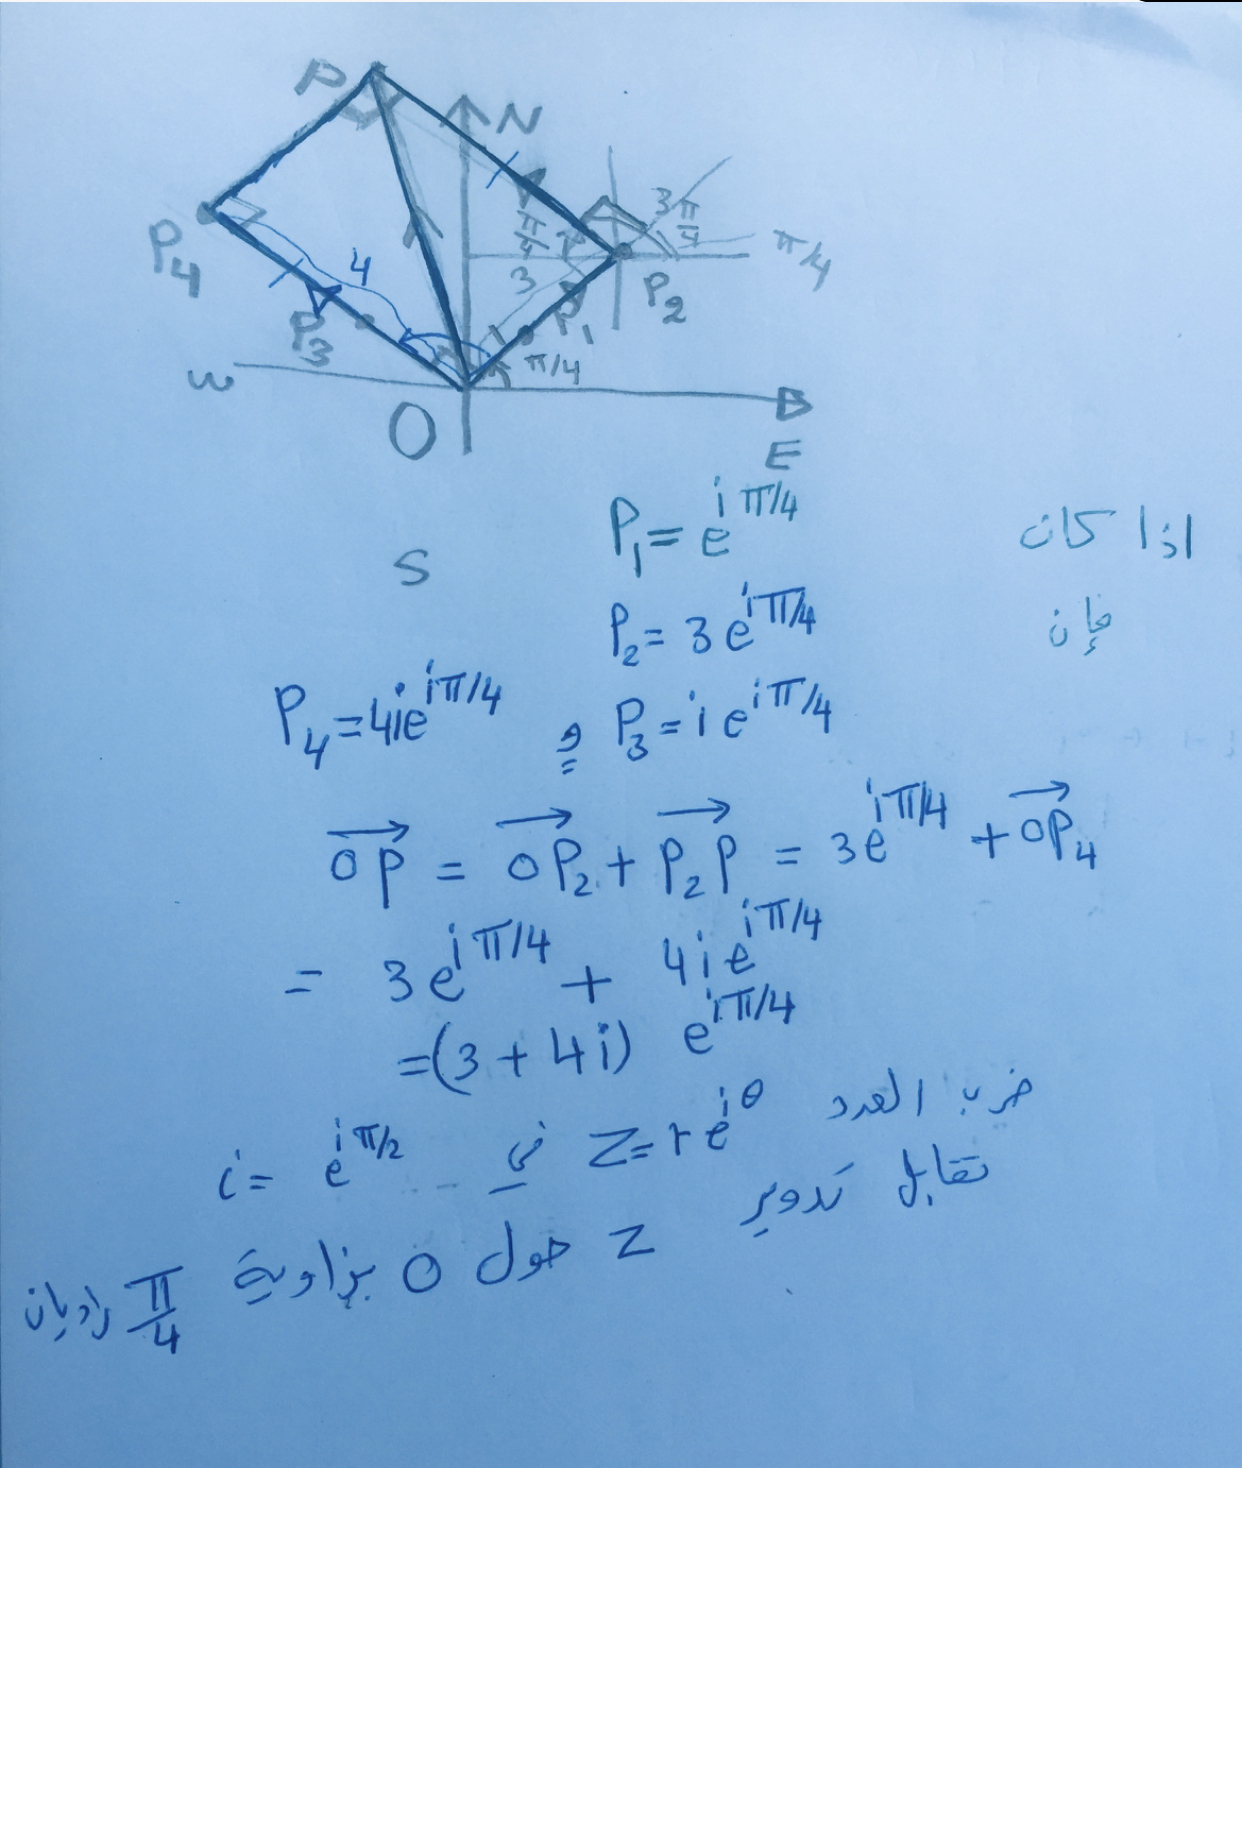 P
N
3π/4
π/4
π/4
P4
4
3
P2
P3
P1
1
π/4
W
O
E
اذا كان P1 = e^{iπ/4}
S
فإن P2 = 3e^{iπ/4}
P3 = i e^{iπ/4} و P4 = 4ie^{iπ/4}
OP = OP2 + P2P = 3e^{iπ/4} + OP4
= 3e^{iπ/4} + 4ie^{iπ/4}
=(3+4i) e^{iπ/4}
ضرب العدد Z=re^{iθ} في i = e^{iπ/2}
تقابل تدوير
Z حول O بزاوية π/4 راديان